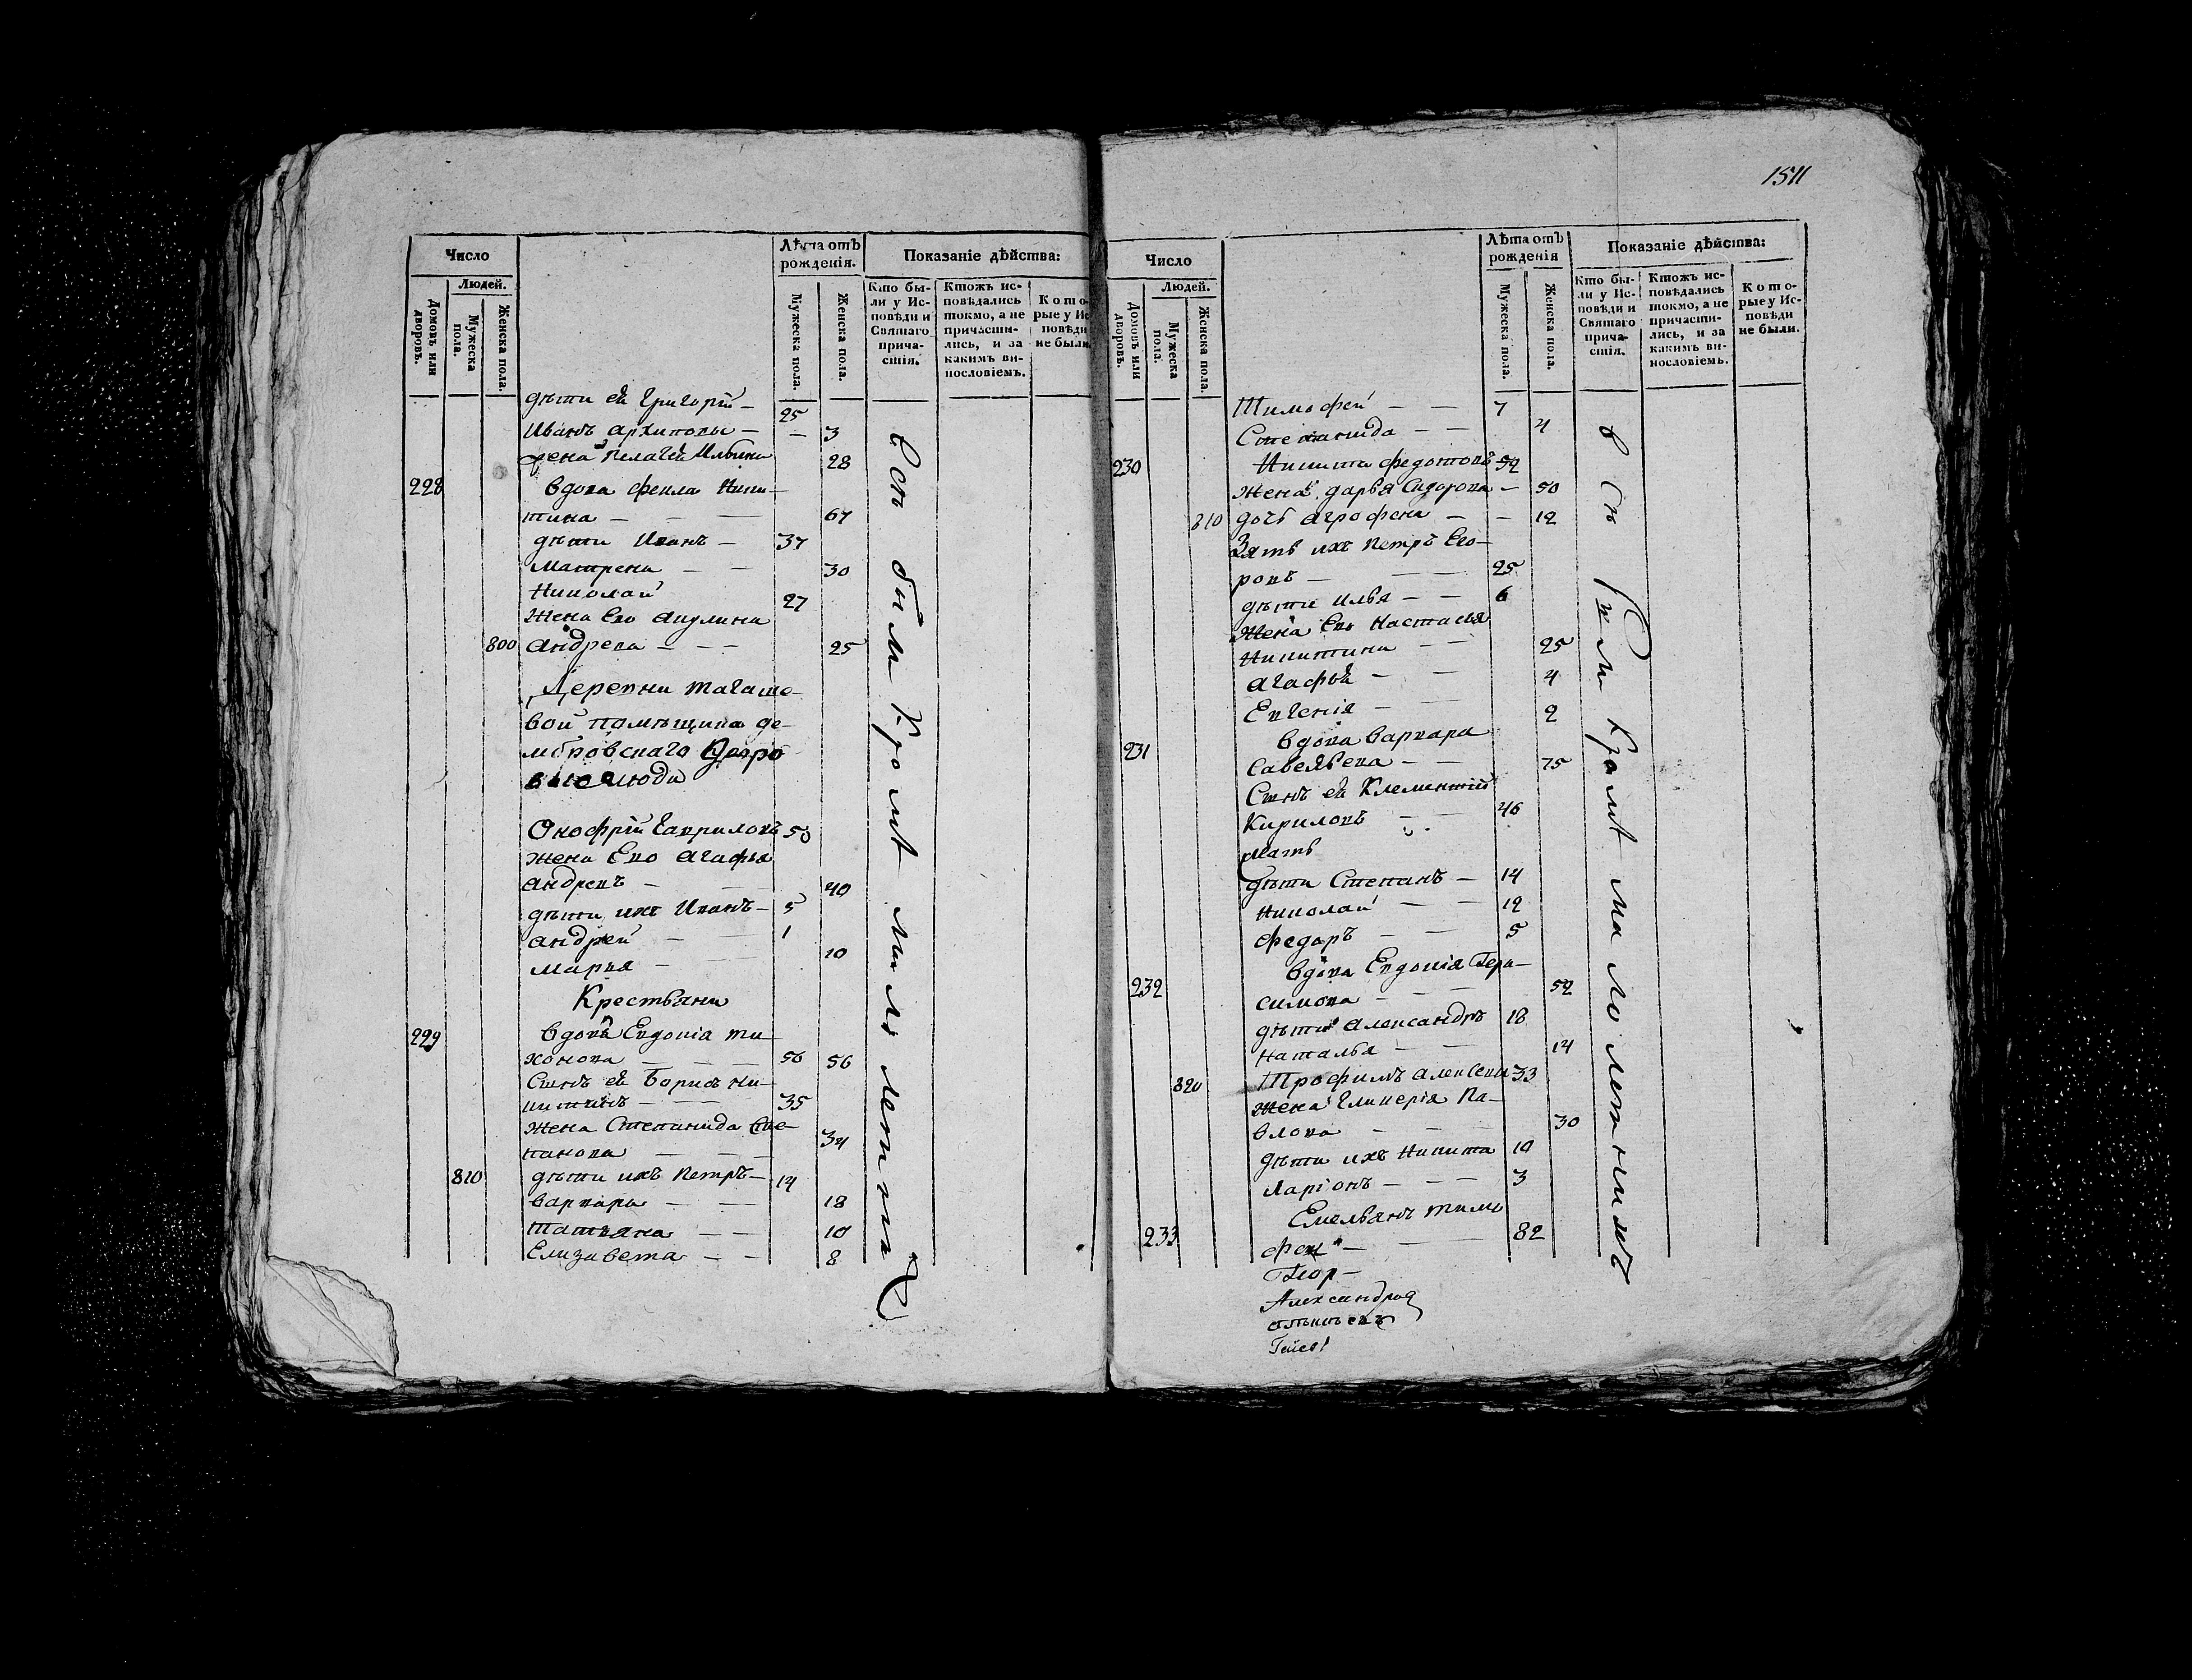 1511
Число
Людей.
Домовъ или дворовъ.
Мужеска пола.
Женска пола.
Лѣта отъ рожденія.
Мужеска пола.
Женска пола.
Показаніе дѣйства:
Кто бы-
ли у Ис-
повѣди и
Святаго
прича-
стія.
Ктожъ ис-
повѣдались
токмо, а не
причасти-
лись, и за
какимъ ви-
нословіемъ.
Кото-
рые у Ис
повѣди
не были.
дѣти ей Григорій — 25
Иванъ Архиповы — — 3
жена Пелагея Ильина 28
228 вдова Фекла Ники-
тина — — — 67
дѣти Иванъ — 37
Матрена — — 30
Николай 27
Жена Ево Акулина
800 Андрева — — — 25
Деревни
вой помѣщика де-
люди
Онофрій Гавриловъ 50
жена Ево Агафья
Андревъ — — 40
дѣти ихъ Иванъ — 5
Андрей — — 1
Марья — — 10
Крестьяни
229 вдова Евдокіа Ти-
хонова — — — 56 56
Сынъ ей Борисъ Ни-
китинъ — — 35
жена Степанида Сте-
панова — — — 34
810 дѣти ихъ Петръ — 14
Варвара — — 18
Татьяна — — 10
Елизавета — — 8
всѣ были кромѣ малолетних
Число
Людей.
Домовъ или дворовъ.
Мужеска пола.
Женска пола.
Лѣта отъ рожденія
Мужеска пола.
Женска пола.
Показаніе дѣйства:
Кто бы-
ли у Ис-
повѣди и
Святаго
прича-
стія.
Ктожъ ис-
повѣдались
токмо, а не
причасти-
лись, и за
какимъ ви-
нословіемъ.
Кото-
рые у Ис-
повѣди
не были.
Тимофей — — 7
Степанида — — 4
230 Никита Федотовъ 52
жена дарья Сидорова — 50
810 дочь Агрофена — — 12
Зять ихъ Петръ Его-
ровъ — — — 25
дѣти Илья — — 6
Жена Ево Настасья
Никитина — — 25
Агафья — — 4
Евгенія — — 2
231 вдова Варвара
Савельева — — 75
Сынъ ей Клементій
Кириловъ — — 46
мать
дѣти Степанъ — 14
Николай — — 12
Федаръ — — 5
232 вдова Евдокія Гера-
симова — — — 52
дѣти Александръ 18
Наталья — — 14
820 Трофимъ Алексеви 33
Жена Гликерія Па-
влова — — — 30
дѣти ихъ Никита 10
Ларіонъ — — — 3
233 Емельянъ Тимо
феи — — — 82
всѣ были кромѣ малолетнихъ